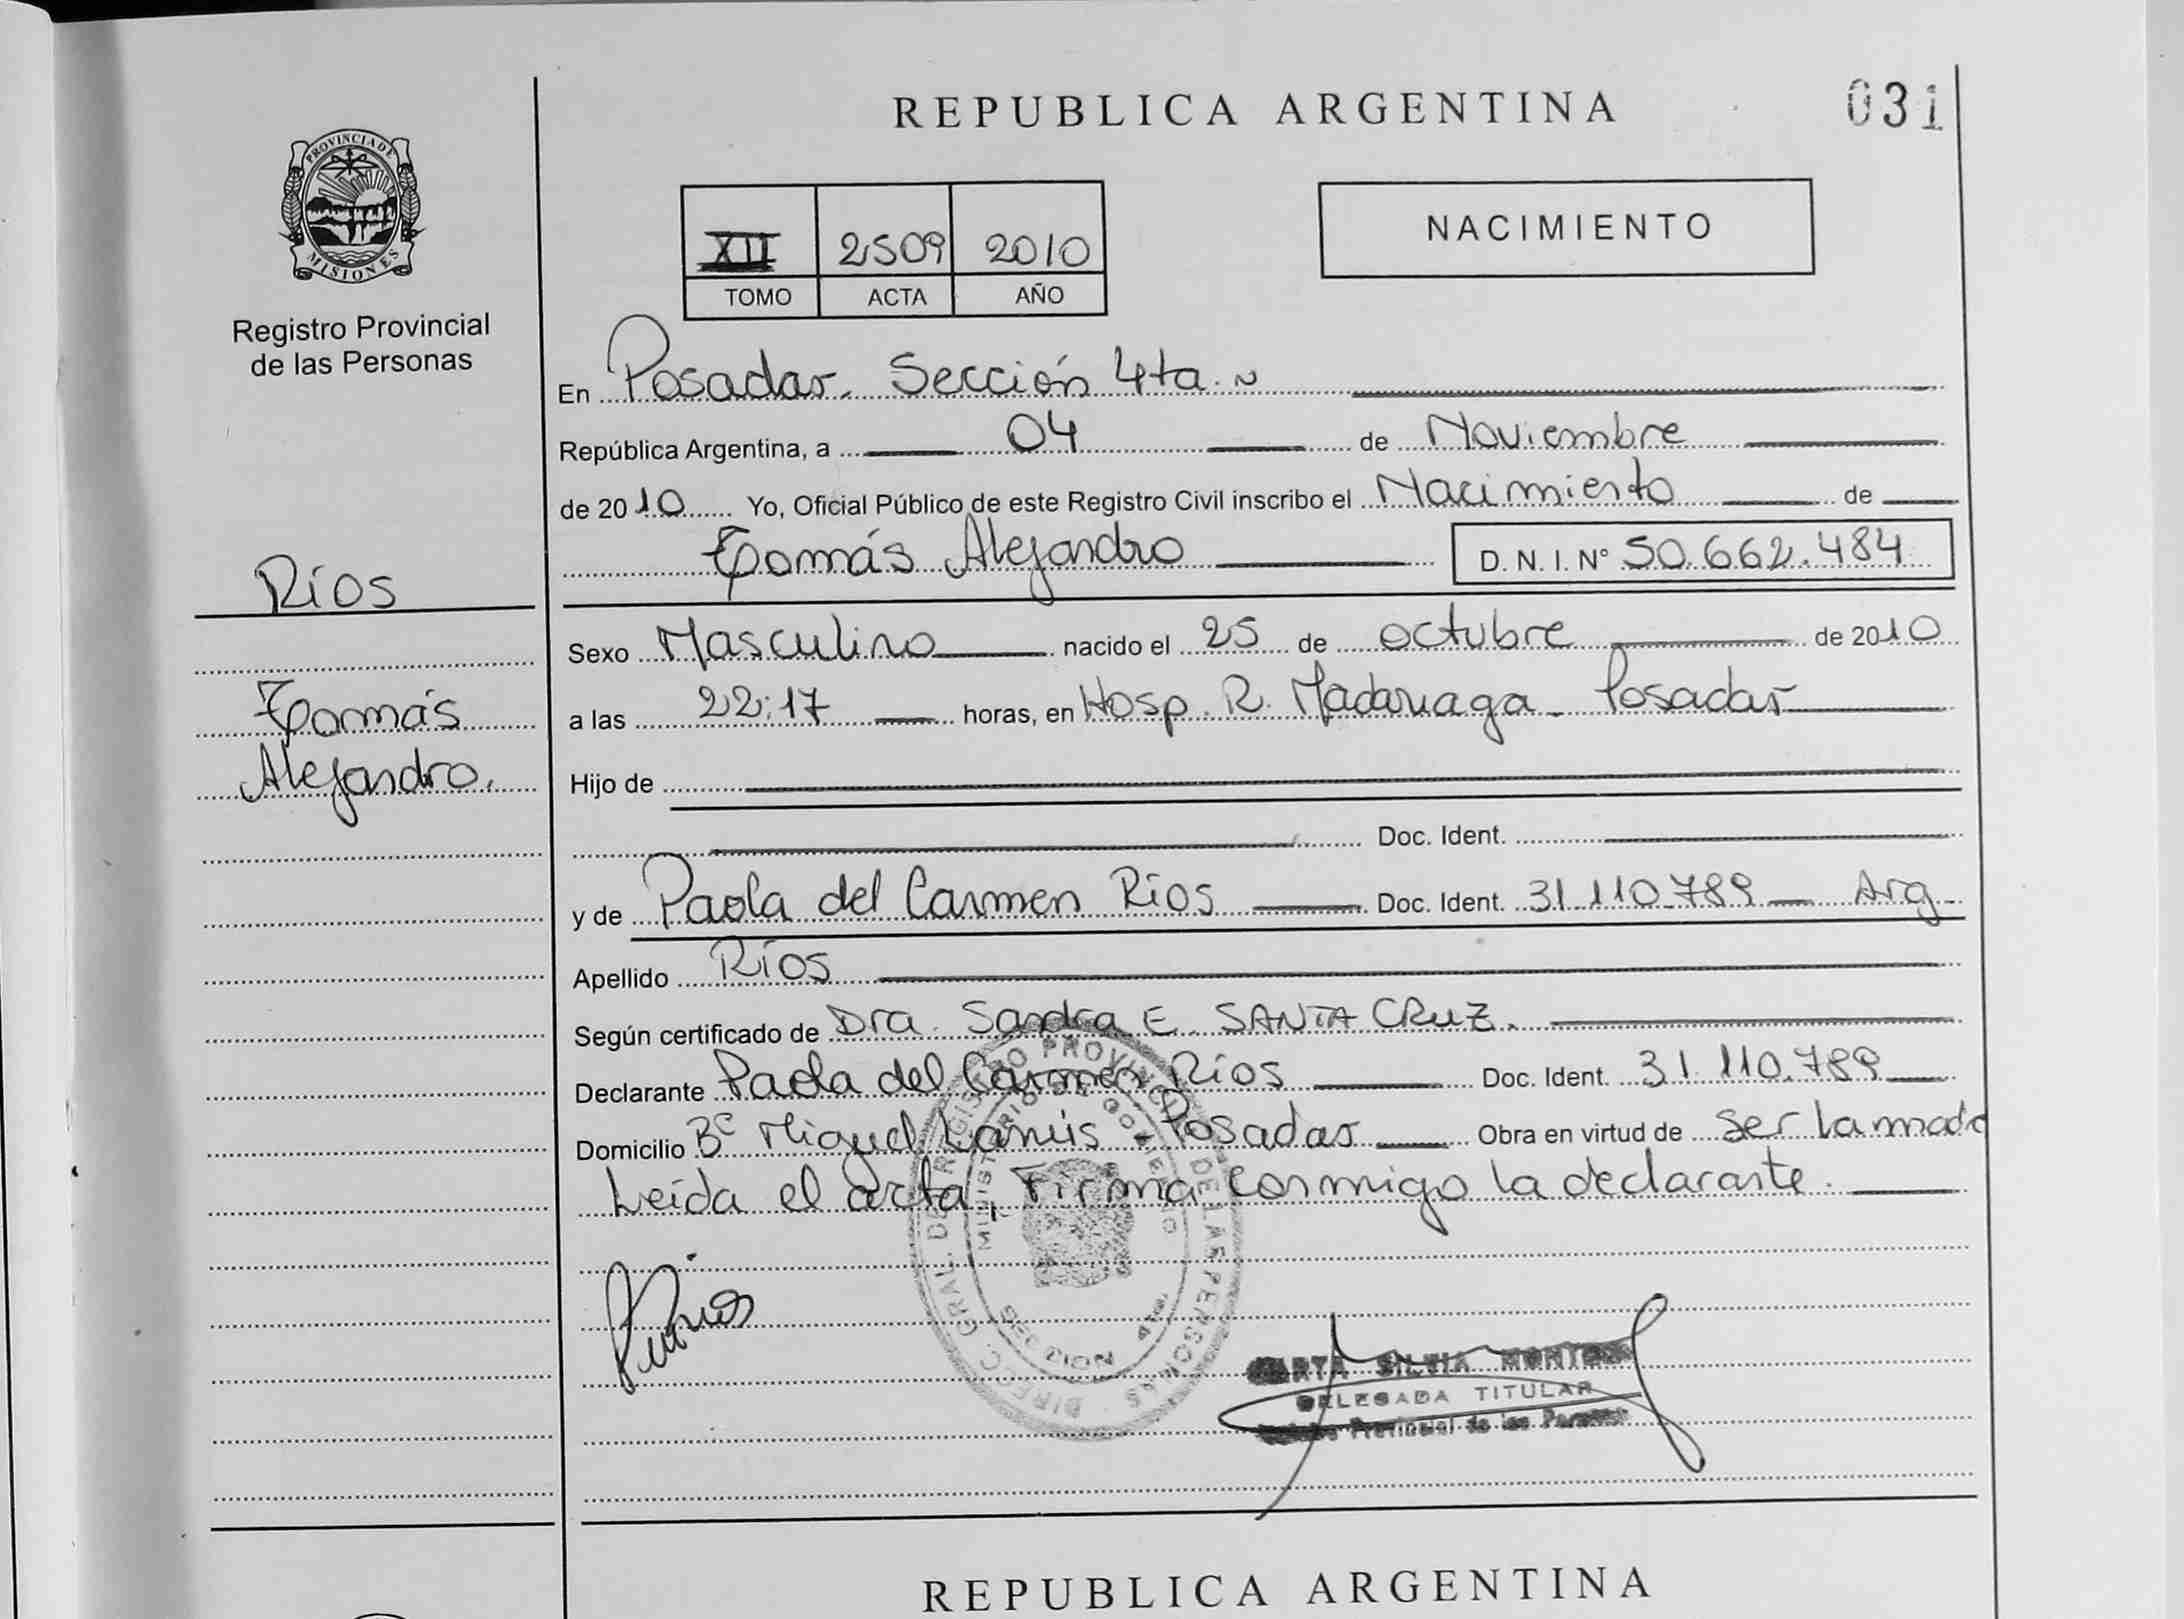 REPUBLICA ARGENTINA
031
PROVINCIA DE
MISIONES
Registro Provincial
de las Personas
XII 2509 2010
TOMO ACTA AÑO
NACIMIENTO
En Posadas. Sección 4ta.
República Argentina, a 04 de Noviembre
de 2010 Yo, Oficial Público de este Registro Civil inscribo el Nacimiento de
Tomás Alejandro D. N. I. Nº 50.662.484
Ríos
Tomás
Alejandro.
Sexo Masculino nacido el 25 de octubre de 2010
a las 22:17 horas, en Hosp. R. Madariaga - Posadas
Hijo de
Doc. Ident.
y de Paola del Carmen Ríos Doc. Ident. 31.110.789 Arg
Apellido Ríos
Según certificado de Dra. Sandra E. SANTA CRUZ.
Declarante Paola del Carmen Ríos Doc. Ident. 31.110.789
Domicilio Bº Miguel Lanús - Posadas Obra en virtud de ser la madre
Leída el acta, Firma conmigo la declarante.
DIREC. GRAL. DEL REGISTRO PROVINCIAL DE LAS PERSONAS
MINISTERIO DE GOBIERNO
MISIONES
SILVIA
DELEGADA TITULAR
Provincial de las Personas
REPUBLICA ARGENTINA